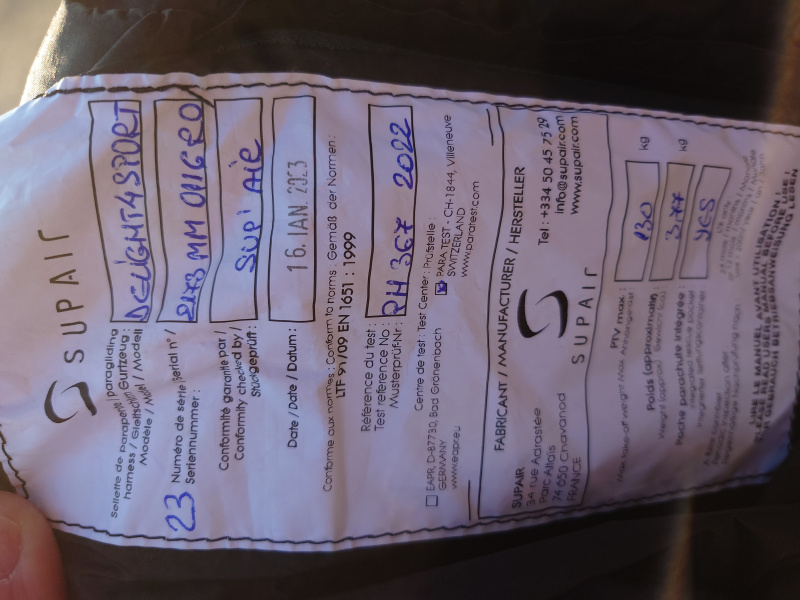 SUPAIR
Sellette de parapente / paragliding
harness / Gleitschirm Gurtzeug
Modèle / Model / Modell
DELIGHT4SPORT
23 Numéro de série / serial n° /
Seriennummer :
Conformité garantie par /
Conformity checked by /
Stückgeprüft :
SUP'AIR
Date / Date / Datum :
16. JAN. 2023
Conforme aux normes : Conform to norms : Gemäß der Normen :
LTF 91/09 EN 1651 : 1999
Référence du test :
Test reference No :
Musterprüf-Nr :
PH 367 2022
Centre de test : Test Center : Prüfstelle :
EAPR, D-87730, Bad Grönenbach
GERMANY
www.eapr.eu
PARA-TEST - CH-1844, Villeneuve
SWITZERLAND
www.paratest.com
FABRICANT / MANUFACTURER / HERSTELLER
SUPAIR
34 rue Adrastée
Parc Altaïs
74 650 Chavanod
FRANCE
SUPAIR
Tel : +334 50 45 75 29
info@supair.com
www.supair.com
PTV max. :
130 kg
Poids (approximatif) :
3.77 kg
Poche parachute intégrée :
YES
LIRE LE MANUEL AVANT UTILISATION !